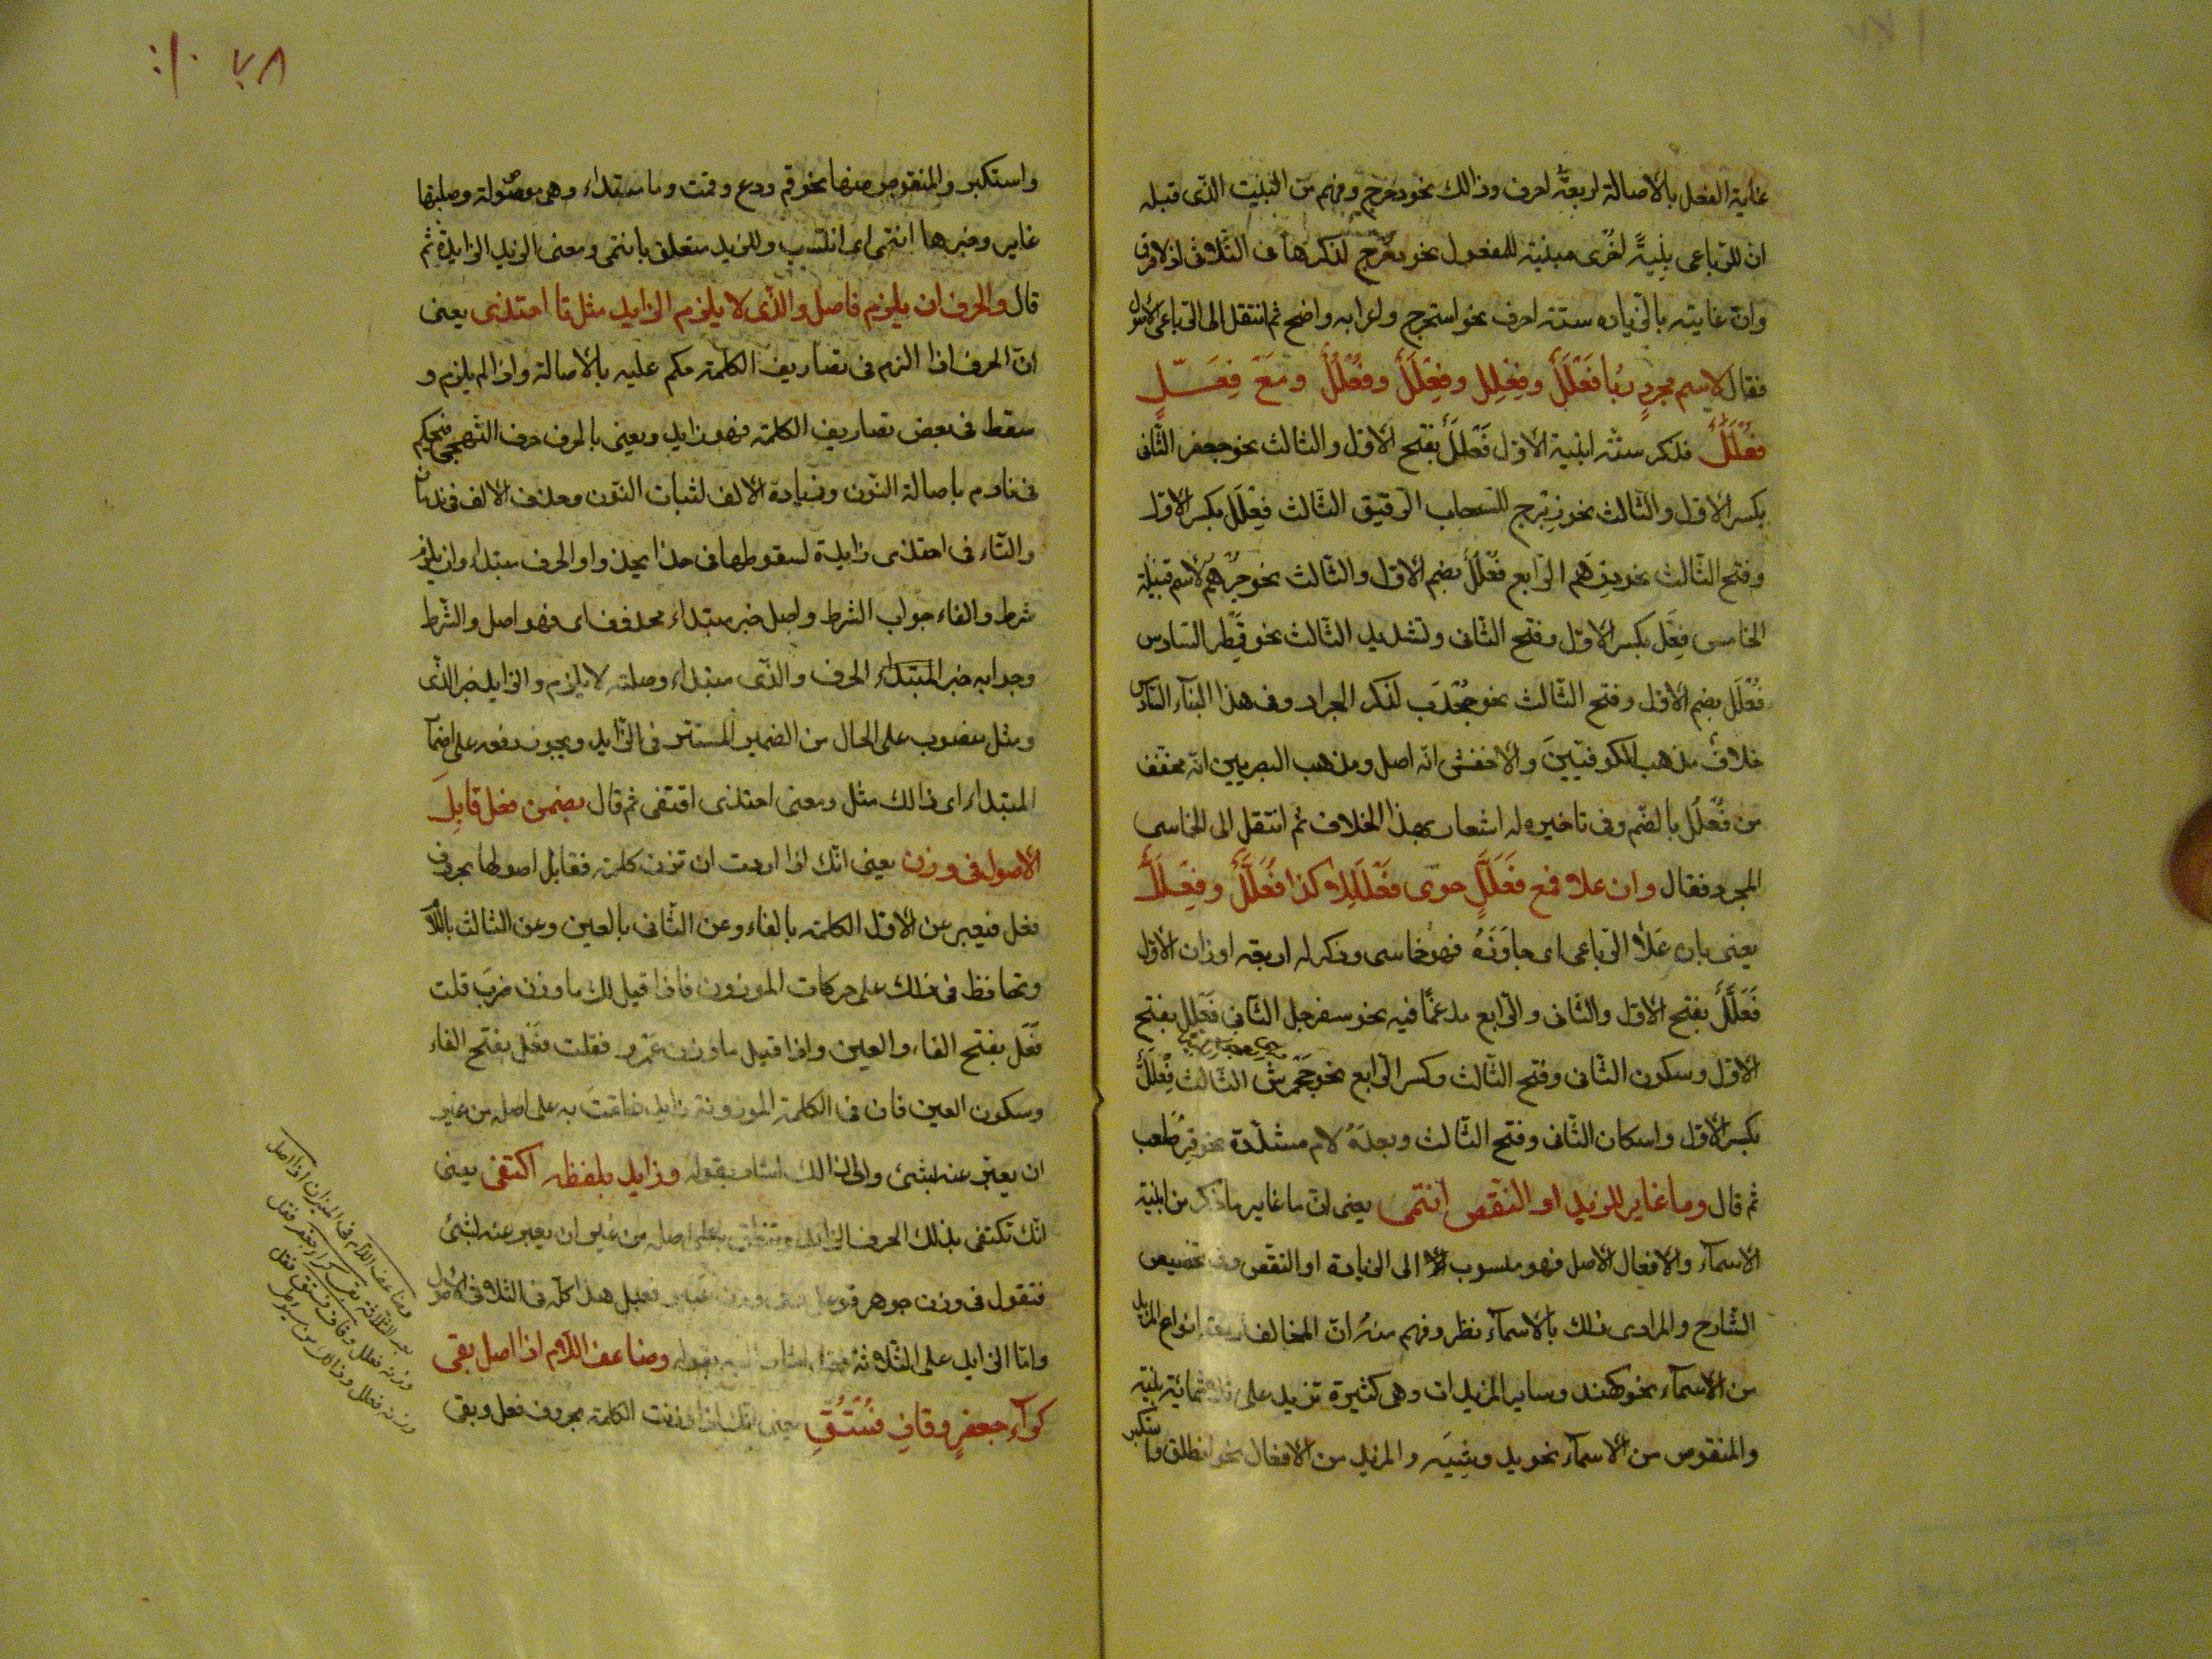 غاية الفعل بالاصالة اربعة احرف وذالك نحو دحرج وفهم من التبنيت الذى قبله
ان للرباعى بنيةً اخرى مبنية للمفعول نحو دحرج لذكرها فى الثلاثى اذ لا فرق
وانّ غايته بالزّياده ستة احرف نحو استخرج واعرابه واضح ثم انتقل الى الرباعى الاصول
فقال لاسم مجردٍ رُباعَ فَعْلَلٌ وفِعْلِلٌ وفِعْلَلٌ وفُعْلُلٌ ومَعْ فِعَلٍّ
فُعْلَلٌ فذكر ستّة ابنية الاوّل فَعْلَلٌ بفتح الاوّل والثالث نحو جعفر الثّانى
بكسر الاوّل والثّالث نحو زِبْرِج للسّحاب الرّقيق الثّالث فِعْلَل بكسر الاوّل
وفتح الثّالث نحو دِرْهَم الرّابع فُعْلُلٌ بضم الاوّل والثّالث نحو جُرْهُم لاسم قبيلة
الخامس فِعَلّ بكسر الاوّل وفتح الثّانى وتشديد الثّالث نحو قِمَطْر السّادس
فُعْلَل بضم الاوّل وفتح الثّالث نحو جُخْدَب لذكر الجراد وفى هذا البنآء السّادس
خلافٌ مذهب الكوفيّينَ والاخفش انّه اصل ومذهب البصريين انّه مخفّف
من فُعْلُل بالضّم وفى تاخيره له اشعار بهذا الخلاف ثم انتقل الى الخماسى
المجرد فقال وان علا فمع فَعَلَّلٍ حوى فَعْلَلِلا كذا فُعَلِّلٌ وفِعْلَلٌّ
يعنى بان عَلَا الرّباعى اى جاوَزَهُ فهو خماسى وذكر له اربعة اوزان الاوّل
فَعَلَّلٌ بفتح الاوّل والثّانى والرّابع مدغمًا فيه نحو سفرجل الثّانى فَعْلَلِل بفتح
الاوّل وسكون الثّانى وفتح الثّالث وكسر الرّابع نحو جَحْمَرِش الثّالث فِعْلَلٌّ
بكسر الاوّل واسكان الثّانى وفتح الثّالث وبعدَهُ لام مشدّدة نحو قِرْطَعب
ثم قال وما غاير للزيد او النّقص انتمى يعنى انّ ما غاير ما ذكر من ابنية
الاسمآء والافعال الاصل فهو منسوب الى الزيادة او النّقص وفى تخصيص
الشّارح والمرادى ذلك بالاسمآء نظر وفهم منهُ انّ المخالف اربعة انواع المزيد
من الاسمآء نحو كنهبل وساير المزيدات وهى كثيرة تزيد على ثلثمائة بنية
والمنقوص من الاسمآء نحو يد وشِيَه والمزيد من الافعال نحو انطلق واستكبر
٧٨
واستكبر والمنقوص منها نحو قم ودع وقمت وما مبتداء وهى موصولة وصلتها
غاير وخبرها انتمى اى انتسب وللزيد متعلق بانتمى ومعنى الزيد الزايدة ثم
قال والحرف ان يلزم فاصل والذّى لا يلزم الزايد مثل تا احتذى يعنى
انّ الحرف اذا لزم فى تصاريف الكلمة حكم عليه بالاصالة واذا لم يلزم و
سقط فى بعض تصاريف الكلمة فهو زايد ويعنى بالحرف حرف التّهجى فنحكم
فى نادم باصالة النّون وزيادة الالف لثبات النّون وحذف الالف فى ندمان
والتّاء فى احتذى زايدة لسقوطها فى حذا يحذوا والحرف مبتداء وان يلزم
شرط والفاء جواب الشرط واصل خبر مبتداء محذوف اى فهو اصل والشّرط
وجوابه خبر المبتداء الحرف والذّى مبتداء وصلته لا يلزم والزايد خبر الذّى
ومثل منصوب على الحال من الضمير المستتر فى الزّايد ويجوز رفعه على اضمآر
المبتداء اى ذالك مثل ومعنى احتذى اقتفى ثم قال بضمن فعل قابِلِ
الاصول فى وزن يعنى انّك اذا اردت ان تزن كلمة فقابل اصولها بحروف
فعل فيعبر عن الاوّل الكلمة بالفاء وعن الثّانى بالعين وعن الثالث باللّام
وتحافظ فى ذلك على حركات الموزون فاذا قيل لك ما وزن ضرَبَ قلت
فَعَل بفتح الفاء والعين واذا قيل ما وزن عَمْرو فقلت فَعْل بفتح الفاء
وسكون العين فان فى الكلمة الموزونة زايد فاتيتَ به على اصله من غير
ان يعبّر عنه بشئ والى ذالك اشار بقوله وزايد بلفظه اكتفى يعنى
انّك تكتفى بذلك الحرف الزايد وتنطق به على اصله من غير ان يعبر عنه بشئ
فتقول فى وزن جوهر فوعل هذا كلّه فى الثلاثى الاصول
وامّا الزايد على الثلاثة اشار اليه بقوله وضاعف اللّام اذا اصل بقى
كرآء جعفرٍ وقافِ فُسْتُقِ يعنى انّك اذا وزنت الكلمة بحروف فعل وبقى
وضاعف اللّام فى الميزان اذا اصل
بعد الثّلاثة بقى كرا جعفر فقل
وزنه فعلل وقاف فستق فقل
وزنه فعلل